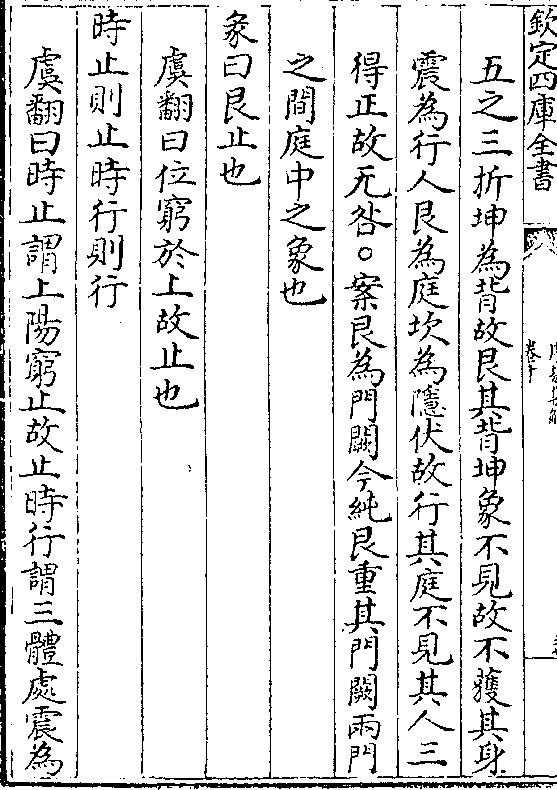 欽定四庫全書
卷十
五之三折坤為背故艮其背坤象不見故不獲其身
震為行人艮為庭坎為隱伏故行其庭不見其人三
得正故无咎○案艮為門闕今純艮重其門闕兩門
之間庭中之象也
彖曰艮止也
虞翻曰位窮於上故止也
時止則止時行則行
虞翻曰時止謂上陽窮止故止時行謂三體處震為